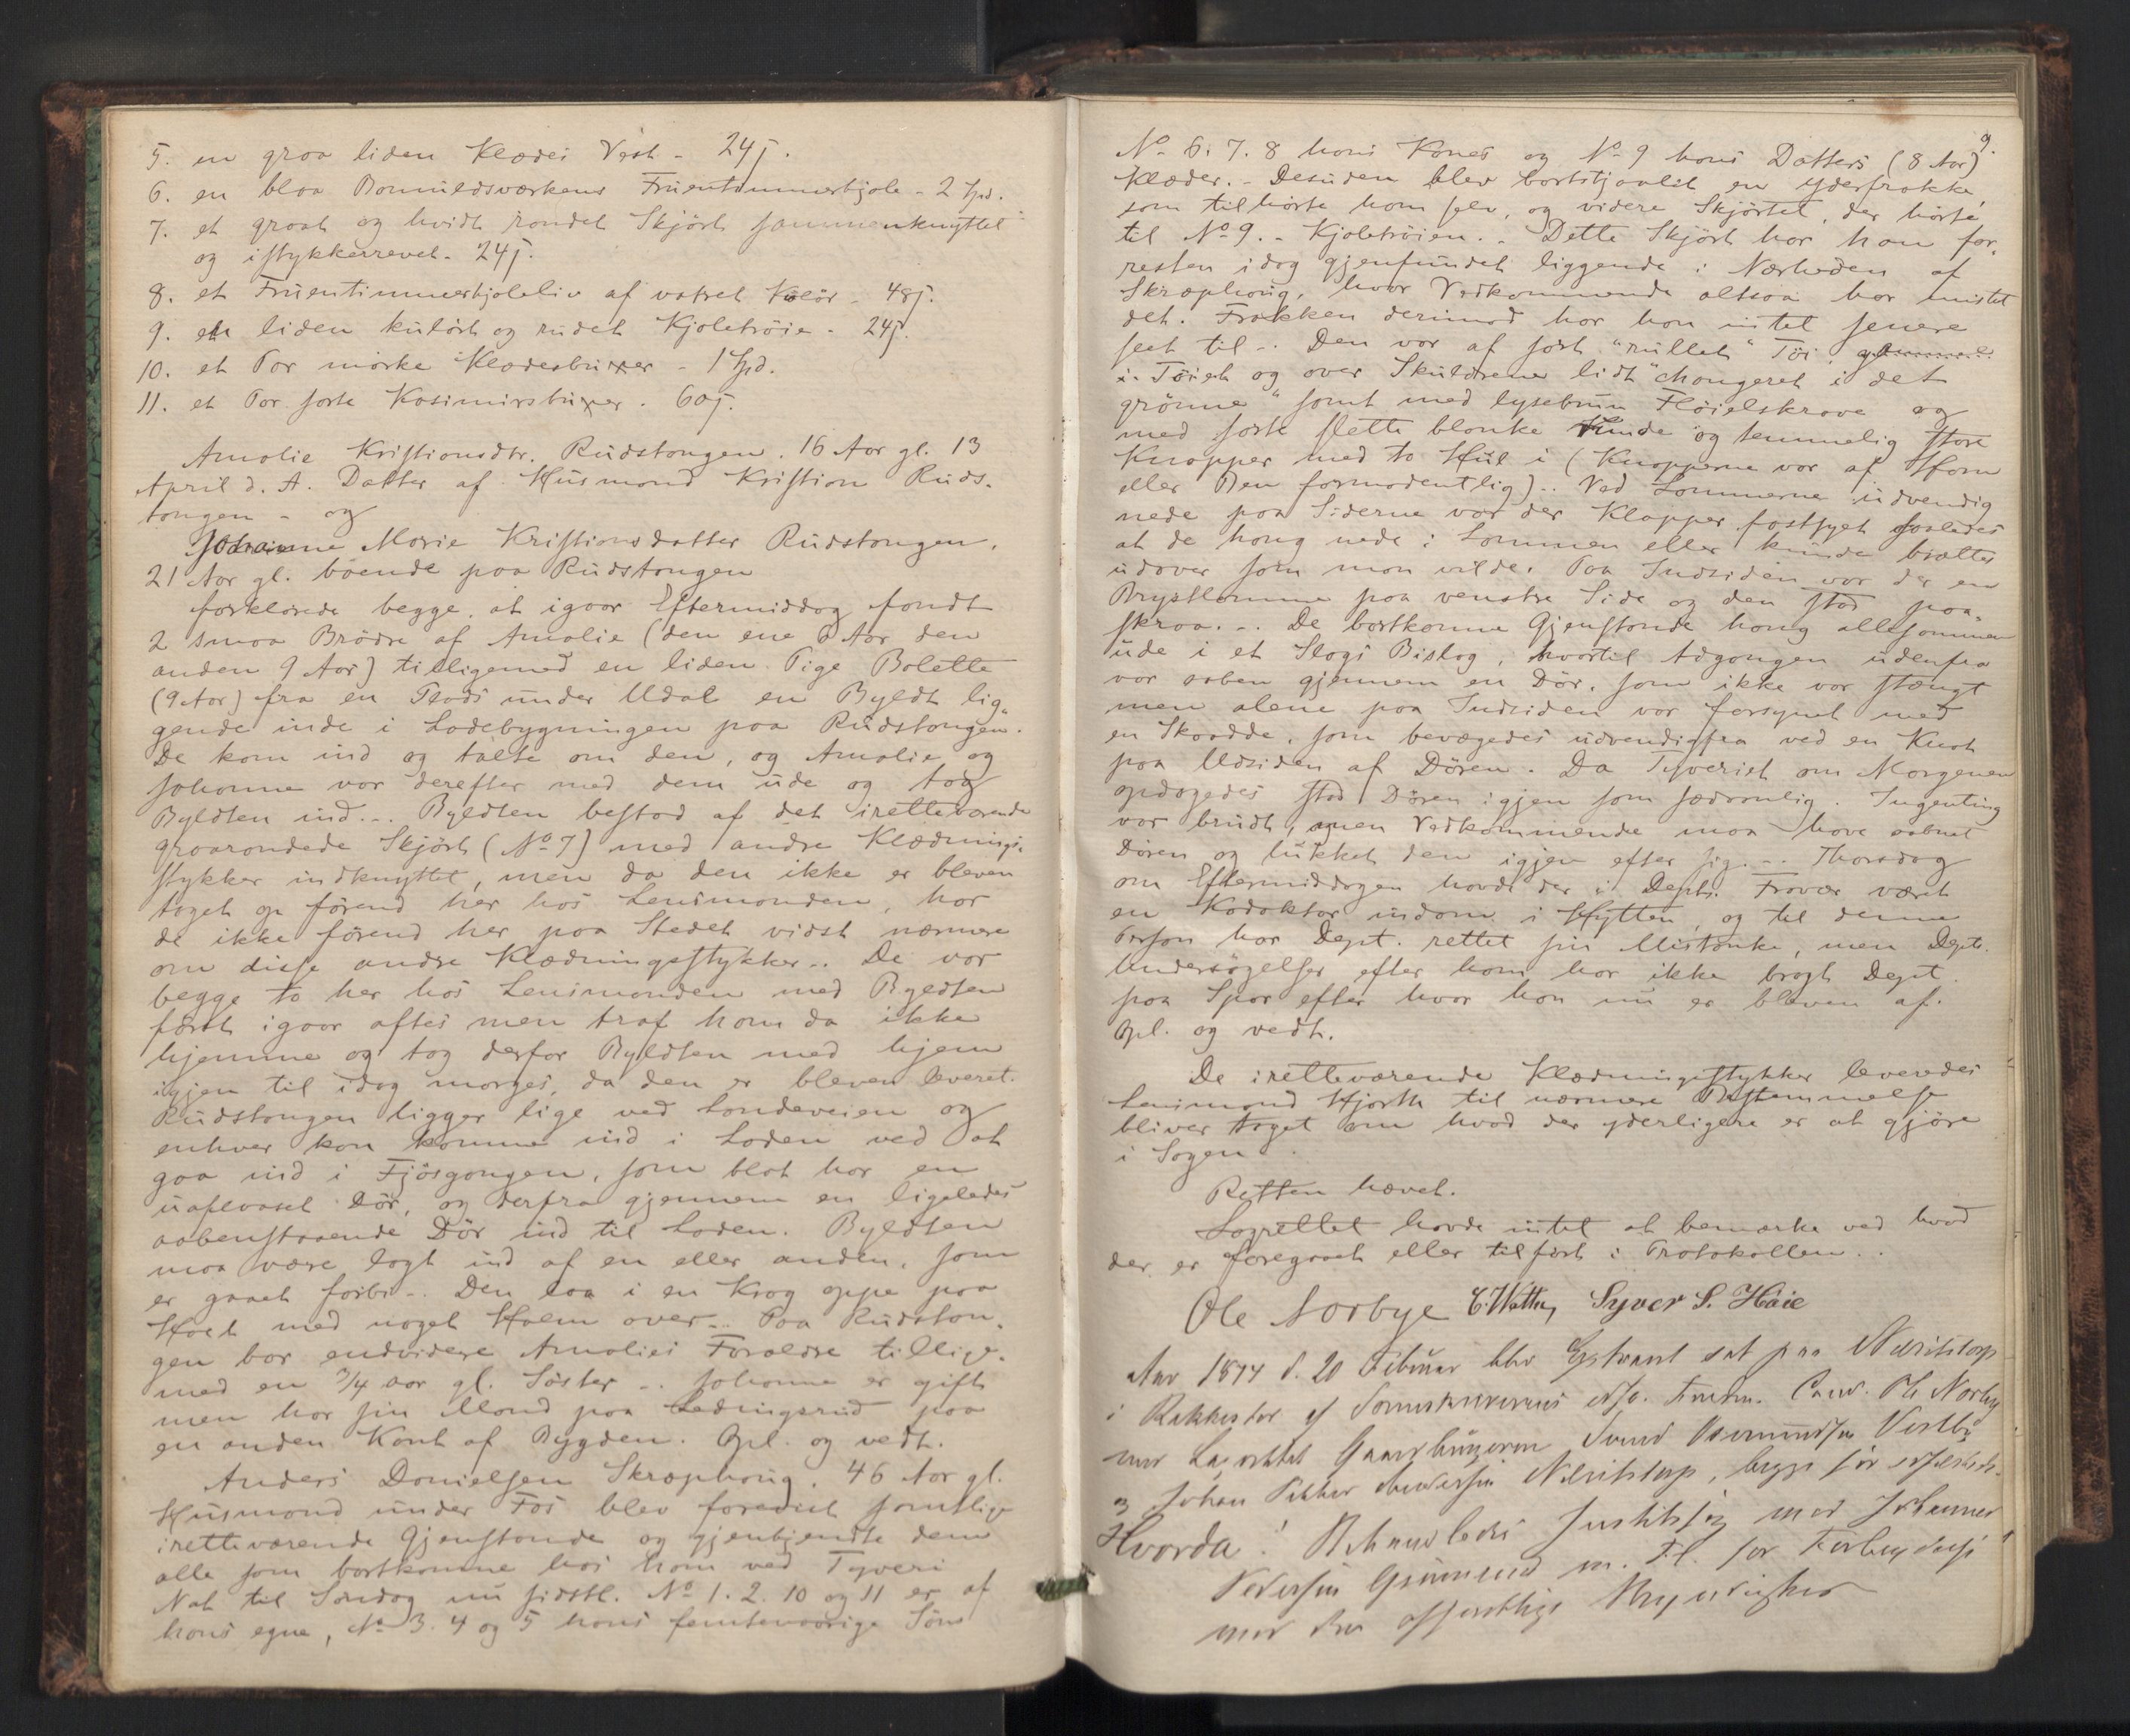 5. en graa liden Klædes Vest - 24ʃ.
6. en blaa Bomuldsværkens Fruentimmerkjole - 2 Spd.
7. et graat og hvidt randet Skjört sammenknyttet
og istykkerrevet. 24ʃ.
8. et Fruentimmerkjoleliv af vatret Kulör - 48ʃ.
9. en liden kulört og rudet Kjoletröie - 24ʃ.
10. et Par mörke Klædesbuxer - 1 Spd.
11. et Par sorte Kasimirsbuxer. 60ʃ.
Amalie Kristiansdtr. Rudstangen. 16 Aar gl. 13
April d. A. Datter af Husmand Kristian Ruds-
tangen - og
Johanne Marie Kristiansdatter Rudstangen.
21 Aar gl. boende paa Rudstangen
forklarede begge, at igaar Eftermiddag fandt
2 smaa Brödre af Amalie (den ene 6 Aar den
anden 9 Aar) tilligemed en liden Pige Bolette
(9 Aar) fra en Plads under Udal en Byldt lig-
gende inde i Ladebygningen paa Rudstangen.
De kom ind og talte om den, og Amalie og
Johanne var derefter med dem ude og tog
Byldten ind. - Byldten bestod af det iretteværende
graarandede Skjört (No 7) med andre Klædnings-
stykker indknyttet, men da den ikke er bleven
taget op förend her hos Lensmanden, har
de ikke förend her paa Stedet vidst nærmere
om disse andre Klædningsstykker. - De var
begge to her hos Lensmanden med Byldten
först igaar aftes men traf ham da ikke
hjemme og tog derfor Byldten med hjem
igjen til idag morges, da den er bleven leveret.
Rudstangen ligger lige ved Landeveien og
enhver kan komme ind i Laden ved at
gaa ind i Fjösgangen, som blot har en
uaflaaset Dör, og derfra gjennem en ligeledes
aabenstaaende Dör ind til Laden. Byldten
maa være lagt ind af en eller anden, som
er gaaet forbi - . Den laa i en Krog oppe paa
Höet med noget Halm over. - Paa Rudstan-
gen bor endvidere Amalies Forældre tillige-
med en 3/4 aar gl. Söster - . Johanne er gift
men har sin Mand paa Ledingsrud paa
en anden Kant af Bygden. Opl. og vedt.
Anders Danielsen Skraphaug. 46 Aar gl.
Husmand under Fos blev forevist samtlige
iretteværende Gjenstande og gjenkjendte dem
alle som bortkomne hos ham ved Tyveri
Nat til Söndag nu sidstl. No 1. 2. 10 og 11 er af
hans egne, No 3. 4 og 5 hans femtenaarige Söns
9.
No 6. 7. 8 hans Kones og No 9 hans Datters (8 Aar)
Klæder. - Desuden blev bortstjaalet en Yderfrakke,
som tilhörte ham selv, og videre Skjörtet, der hörte
til No 9. - Kjoletröien. - Dette Skjört har han for-
resten idag gjenfundet liggende i Nærheden af
Skraphaug, hvor Vedkommende altsaa har mistet
det. Frakken derimod har han intet senere
seet til - . Den var af sort "rullet" Töi,
i Töiet og over Skuldrene lidt "changeret i det
grönne" samt med lysebrun Flöielskrave og
med sorte slette blanke runde og temmelig store
Knapper med to Hul i (Knapperne var af Horn
eller Ben formodentlig) - . Ved Lommerne udvendig
nede paa Siderne var der Klapper fastsyet saaledes
at de hang nede i Lommen eller kunde brættes
udover som man vilde. Paa Indsiden var der en
Brystlomme paa venstre Side og den stod paa
skraa. - . De bortkomne Gjenstande hang allesammen
ude i et Slags Bislag, hvortil Adgangen udenfra
var aaben gjennem en Dör, som ikke var stængt
men alene paa Indsiden var forsynet med
en Skaadde, som bevægedes udvendigfra ved en Knot
paa Udsiden af Dören. Da Tyveriet om Morgenen
opdagedes stod Dören igjen som sædvanlig. Ingenting
var brudt, men Vedkommende maa have aabnet
Dören og lukket den igjen efter sig. - . Thorsdag
om Eftermiddagen havde der i Depts. Fravær været
en indom i Hytten, og til denne
Person har Dept. rettet sin Mistanke, men Depts.
Undersögelser efter ham har ikke bragt Dept.
paa Spor efter hvor han nu er bleven af.
Opl. og vedt.
De iretteværende Klædningsstykker leveredes
Lensmand Hjorth til nærmere Bestemmelse
bliver taget om hvad der yderligere er at gjöre
i Sagen.
Retten hævet.
Lagrettet havde intet at bemærke ved hvad
der er foregaaet eller tilfört i Protokollen. .
Ole Norbye Syver S. Haie
Aar 1877 d. 20 Februar blev Extraret sat paa
i Rakkestad af Sorenskriverens Cand. Ole Norbye
med Lagrettet Gaardbrugerne Svend Vestby
og Johan Petter Andersen begge för
Hvorda: Behandledes Justitssag mod Johannes
Pedersen Grimsrud m. Fl. for Forbrydelse
mod den offentlige Myndighed